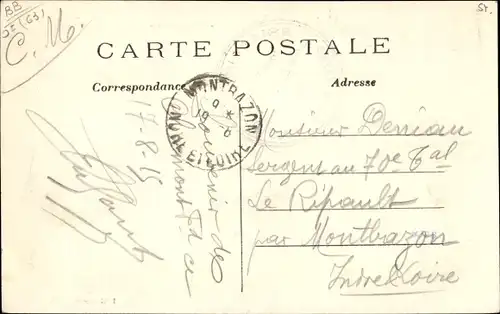 BB
(63)
C. M.
54.
CARTE POSTALE
Correspondance
Adresse
MONTBAZON
INDRE ET LOIRE
17-8-15
Souvenir de
Clermont-Fd
Monsieur Deniau
Sergent au 70e Tal
Le Ripault
par Montbazon
Indre & Loire